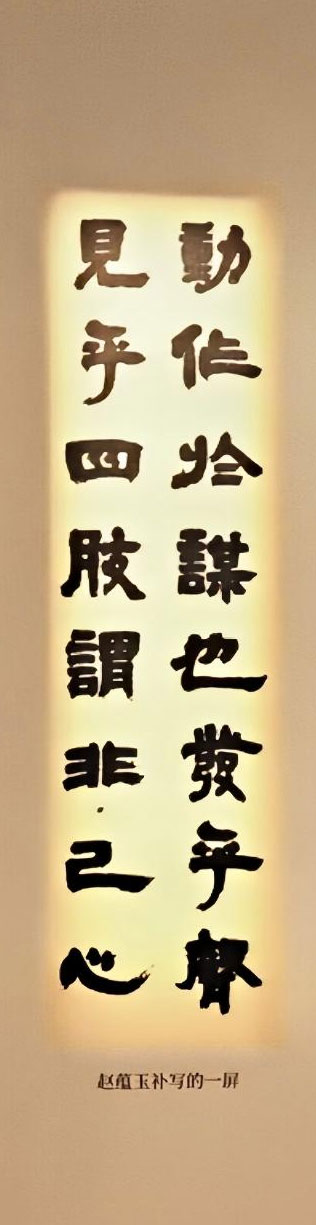 動作於謀也發乎聲
見乎四肢謂非己心
赵蕴玉补写的一屏